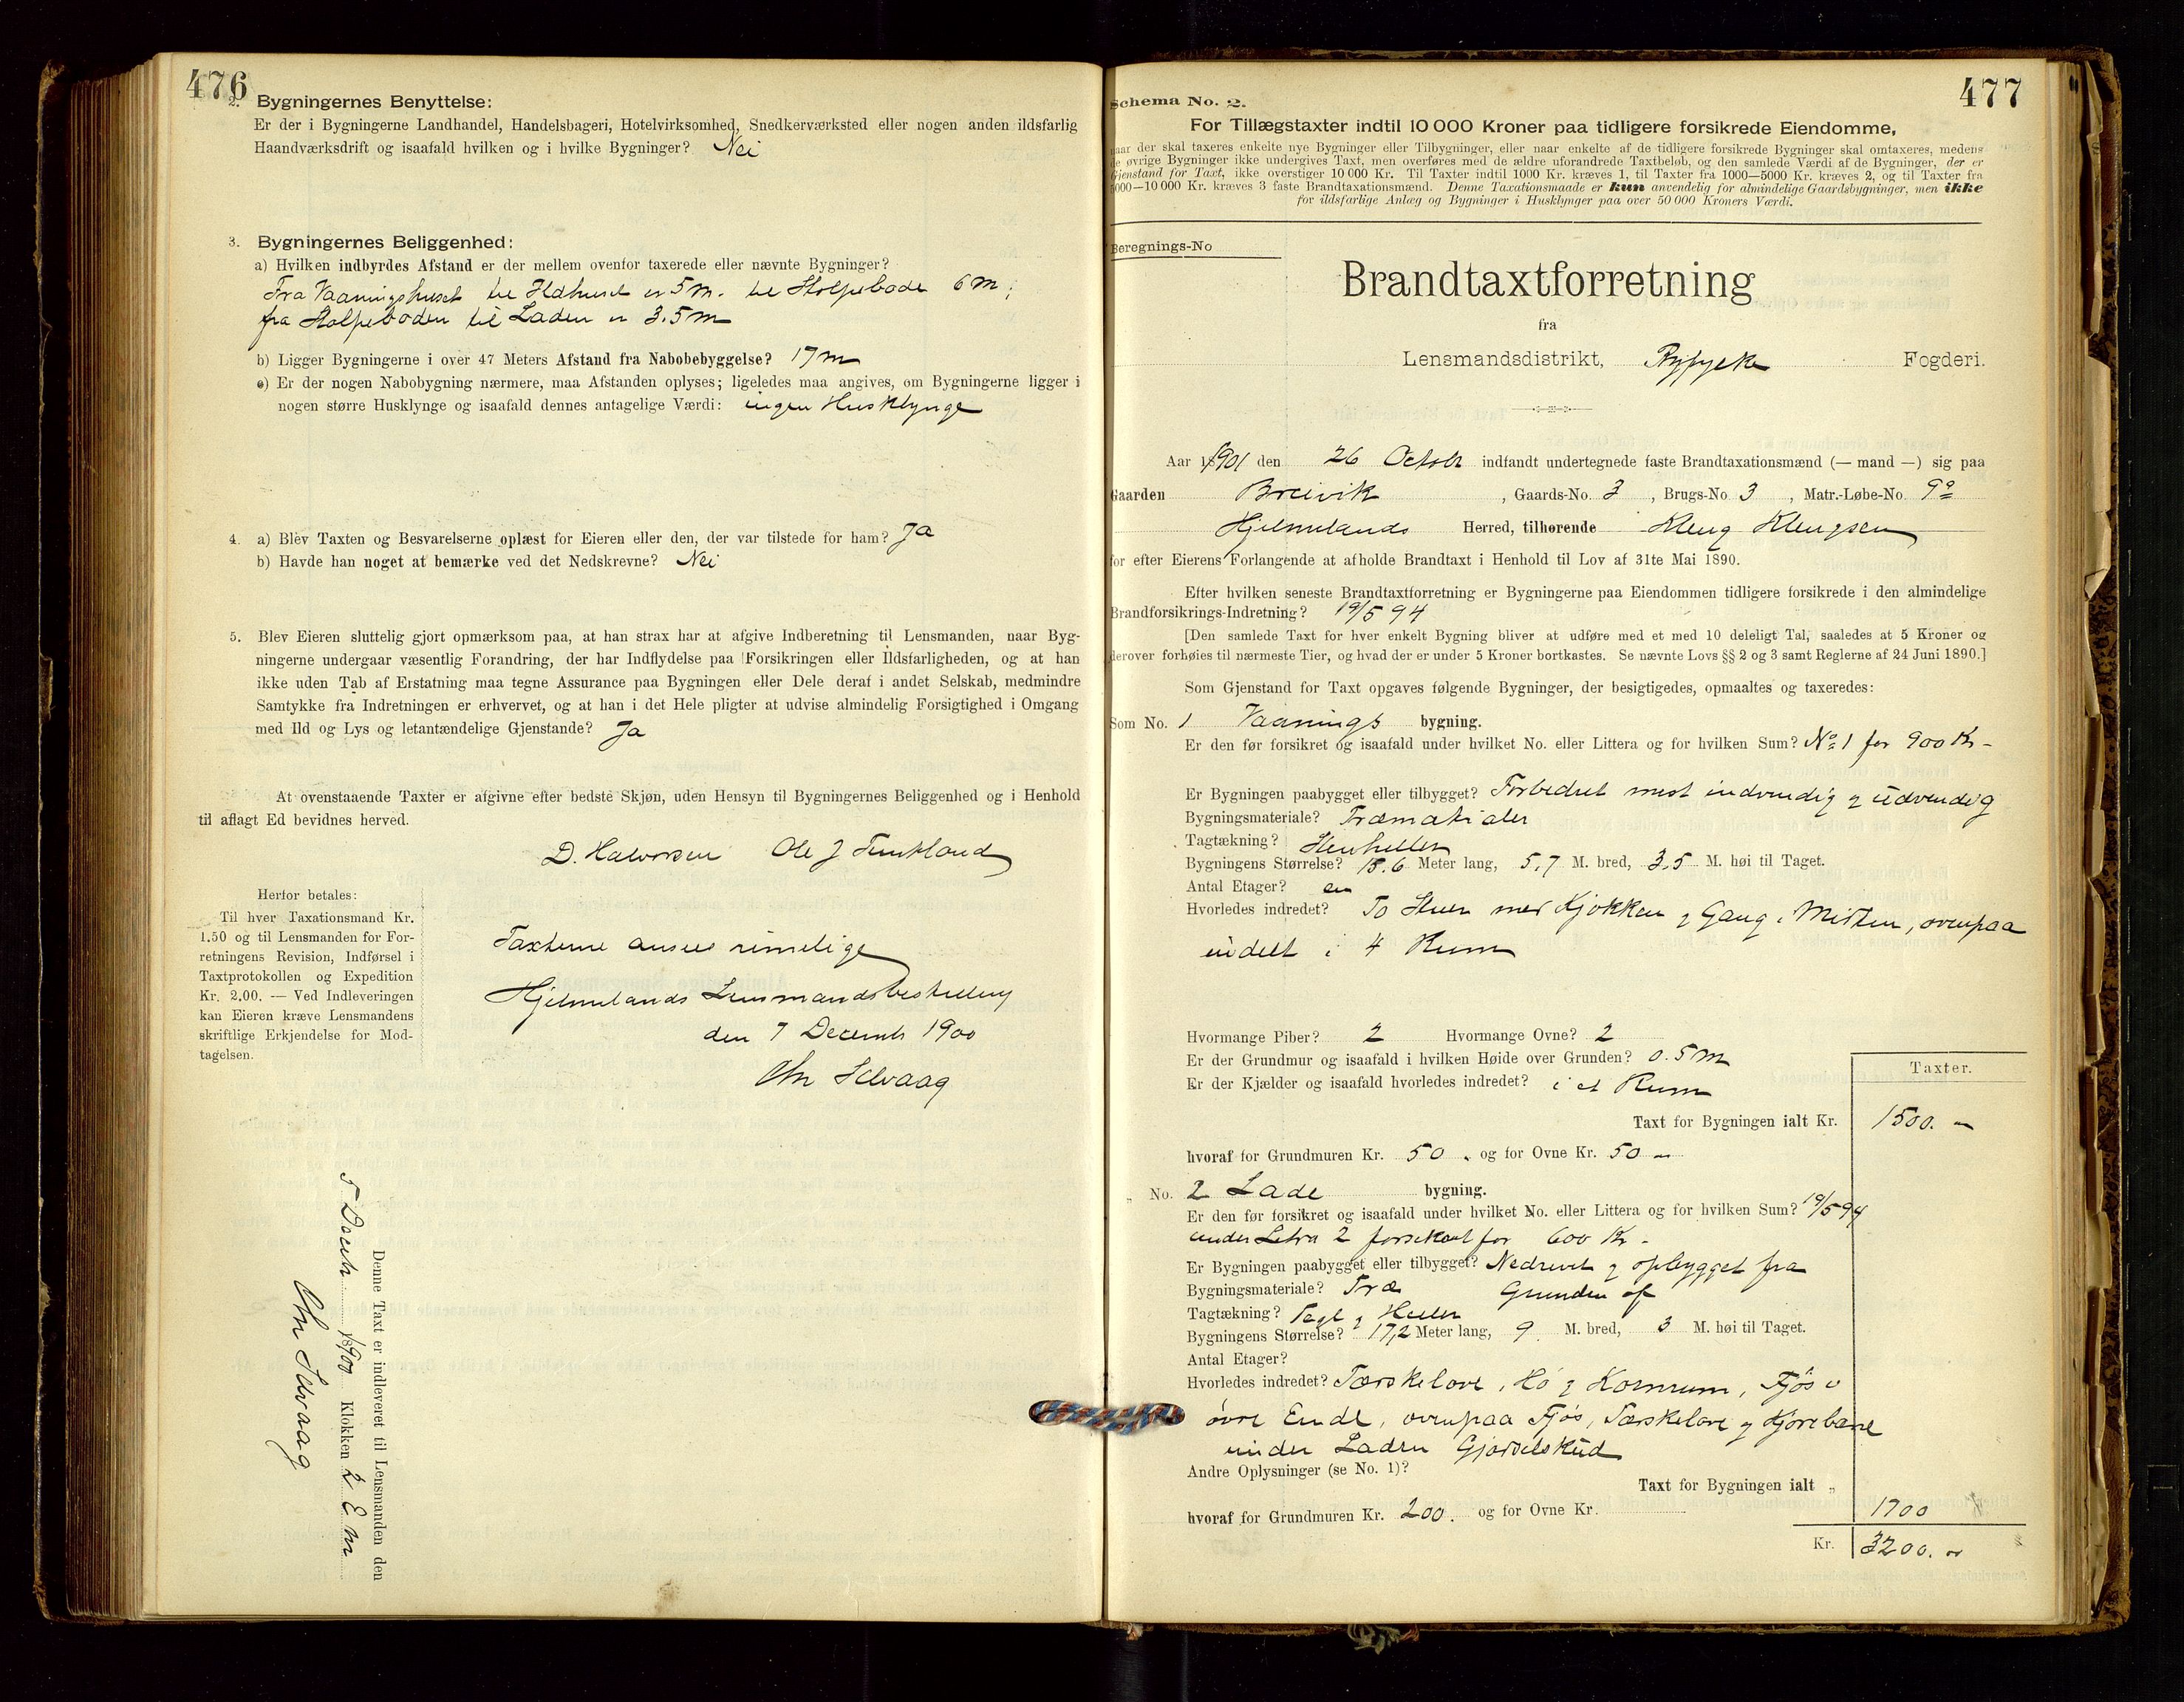 476
2. Bygningernes Benyttelse:
Er der i Bygningerne Landhandel, Handelsbageri, Hotelvirksomhed, Snedkerværksted eller nogen anden ildsfarlig
Haandværksdrift og isaafald hvilken og i hvilke Bygninger? Nei
3. Bygningernes Beliggenhed:
a) Hvilken indbyrdes Afstand er der mellem ovenfor taxerede eller nævnte Bygninger?
Fra Vaaningshuset til Ildhuset er 5 m. til Stolpebode 6 m;
fra Stolpeboden til Laden er 3.5 m
b) Ligger Bygningerne i over 47 Meters Afstand fra Nabobebyggelse? 17 m
c) Er der nogen Nabobygning nærmere, maa Afstanden oplyses; ligeledes maa angives, om Bygningerne ligger i
nogen større Husklynge og isaafald dennes antagelige Værdi: ingen Husklynge
4. a) Blev Taxten og Besvarelserne oplæst for Eieren eller den, der var tilstede for ham? Ja
b) Havde han noget at bemærke ved det Nedskrevne? Nei
5. Blev Eieren sluttelig gjort opmærksom paa, at han strax har at afgive Indberetning til Lensmanden, naar Byg-
ningerne undergaar væsentlig Forandring, der har Indflydelse paa Forsikringen eller Ildsfarligheden, og at han
ikke uden Tab af Erstatning maa tegne Assurance paa Bygningen eller Dele deraf i andet Selskab, medmindre
Samtykke fra Indretningen er erhvervet, og at han i det Hele pligter at udvise almindelig Forsigtighed i Omgang
med Ild og Lys og letantændelige Gjenstande? Ja
At ovenstaaende Taxter er afgivne efter bedste Skjøn, uden Hensyn til Bygningernes Beliggenhed og i Henhold
til aflagt Ed bevidnes herved.
D. Halvorsen Ole J
Herfor betales:
Til hver Taxationsmand Kr.
1.50 og til Lensmanden for For-
retningens Revision, Indførsel i
Taxtprotokollen og Expedition
Kr. 2.00. — Ved Indleveringen
kan Eieren kræve Lensmandens
skriftlige Erkjendelse for Mod-
tagelsen.
Taxterne ansees rimelige
Hjelmelands Lensmandsbestilling
den 7 Decemb 1900
Chr Selvaag
Denne Taxt er indleveret til Lensmanden den
5 Decbr 1900 Klokken 2 E m
Chr Selvaag
477
Schema No. 2.
For Tillægstaxter indtil 10 000 Kroner paa tidligere forsikrede Eiendomme,
naar der skal taxeres enkelte nye Bygninger eller Tilbygninger, eller naar enkelte af de tidligere forsikrede Bygninger skal omtaxeres, medens
de øvrige Bygninger ikke undergives Taxt, men overføres med de ældre uforandrede Taxtbeløb, og den samlede Værdi af de Bygninger, der er
Gjenstand for Taxt, ikke overstiger 10 000 Kr. Til Taxter indtil 1000 Kr. kræves 1, til Taxter fra 1000—5000 Kr. kræves 2, og til Taxter fra
5000—10 000 Kr. kræves 3 faste Brandtaxationsmænd. Denne Taxationsmaade er kun anvendelig for almindelige Gaardsbygninger, men ikke
for ildsfarlige Anlæg og Bygninger i Husklynger paa over 50 000 Kroners Værdi.
Beregnings-No
Brandtaxtforretning
fra
Lensmandsdistrikt, Ryfylke Fogderi.
Aar 1901 den 26 Octobr indfandt undertegnede faste Brandtaxationsmænd (— mand —) sig paa
Gaarden Breivik, Gaards-No. 3, Brugs-No 3, Matr.-Løbe-No. 9a
Hjelmelands Herred, tilhørende Kleng Klengsen
for efter Eierens Forlangende at afholde Brandtaxt i Henhold til Lov af 31te Mai 1890.
Efter hvilken seneste Brandtaxtforretning er Bygningerne paa Eiendommen tidligere forsikrede i den almindelige
Brandforsikrings-Indretning? 19/5 94
[Den samlede Taxt for hver enkelt Bygning bliver at udføre med et med 10 deleligt Tal, saaledes at 5 Kroner og
derover forhøies til nærmeste Tier, og hvad der er under 5 Kroner bortkastes. Se nævnte Lovs §§ 2 og 3 samt Reglerne af 24 Juni 1890.]
Som Gjenstand for Taxt opgaves følgende Bygninger, der besigtigedes, opmaaltes og taxeredes:
Som No. 1 Vaanings bygning.
Er den før forsikret og isaafald under hvilket No. eller Littera og for hvilken Sum? No 1 for 900 Kr -
Er Bygningen paabygget eller tilbygget? Forbedret mest indvendig og udvendig
Bygningsmateriale? Træmatrialer
Tagtækning? Stenheller
Bygningens Størrelse? 15.6 Meter lang, 5,7 M. bred, 3,5 M. høi til Taget.
Antal Etager? en
Hvorledes indredet? To Stuer med Kjøkken og Gang i Midten, ovenpaa
indelt i 4 Rum
Hvormange Piber? 2 Hvormange Ovne? 2
Er der Grundmur og isaafald i hvilken Høide over Grunden? 0.5 m
Er der Kjælder og isaafald hvorledes indredet? i et Rum
Taxter.
Taxt for Bygningen ialt Kr. 1500. -
hvoraf for Grundmuren Kr. 50 . og for Ovne Kr. 50 -
" No. 2 Lade bygning.
Er den før forsikret og isaafald under hvilket No. eller Littera og for hvilken Sum? 19/5 94
under Letra 2 forsikret for 600 Kr -
Er Bygningen paabygget eller tilbygget? Nedrevet og opbygget fra
Bygningsmateriale? Træ Grunden af
Tagtækning? Tagl og Heller
Bygningens Størrelse? 17,2 Meter lang, 9 M. bred, 3 M. høi til Taget.
Antal Etager?
Hvorledes indredet? Tærskelove, Hø og Kornrum, Fjøs i
øvre Ende, ovenpaa Fjøs, Tærskelove og Kjørebane
under Laden Gjødselskud
Andre Oplysninger (se No. 1)?
Taxt for Bygningen ialt " 1700
hvoraf for Grundmuren Kr. 200. og for Ovne Kr.
Kr. 3200. -